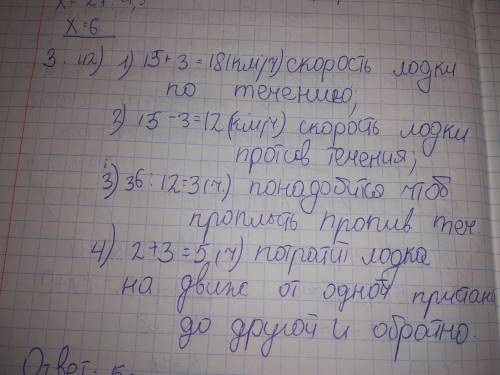 x = 2,7 : 4,5
x = 6
3. (12) 1) 15 + 3 = 18 (км/ч) скорость лодки
по течению;
2) 15 - 3 = 12 (км/ч) скорость лодки
против течения;
3) 36 : 12 = 3 (ч.) понадобится чтоб
проплыть против теч.
4) 2 + 3 = 5 (ч) потратит лодка
на движ от одной пристани
до другой и обратно.
Ответ: 5